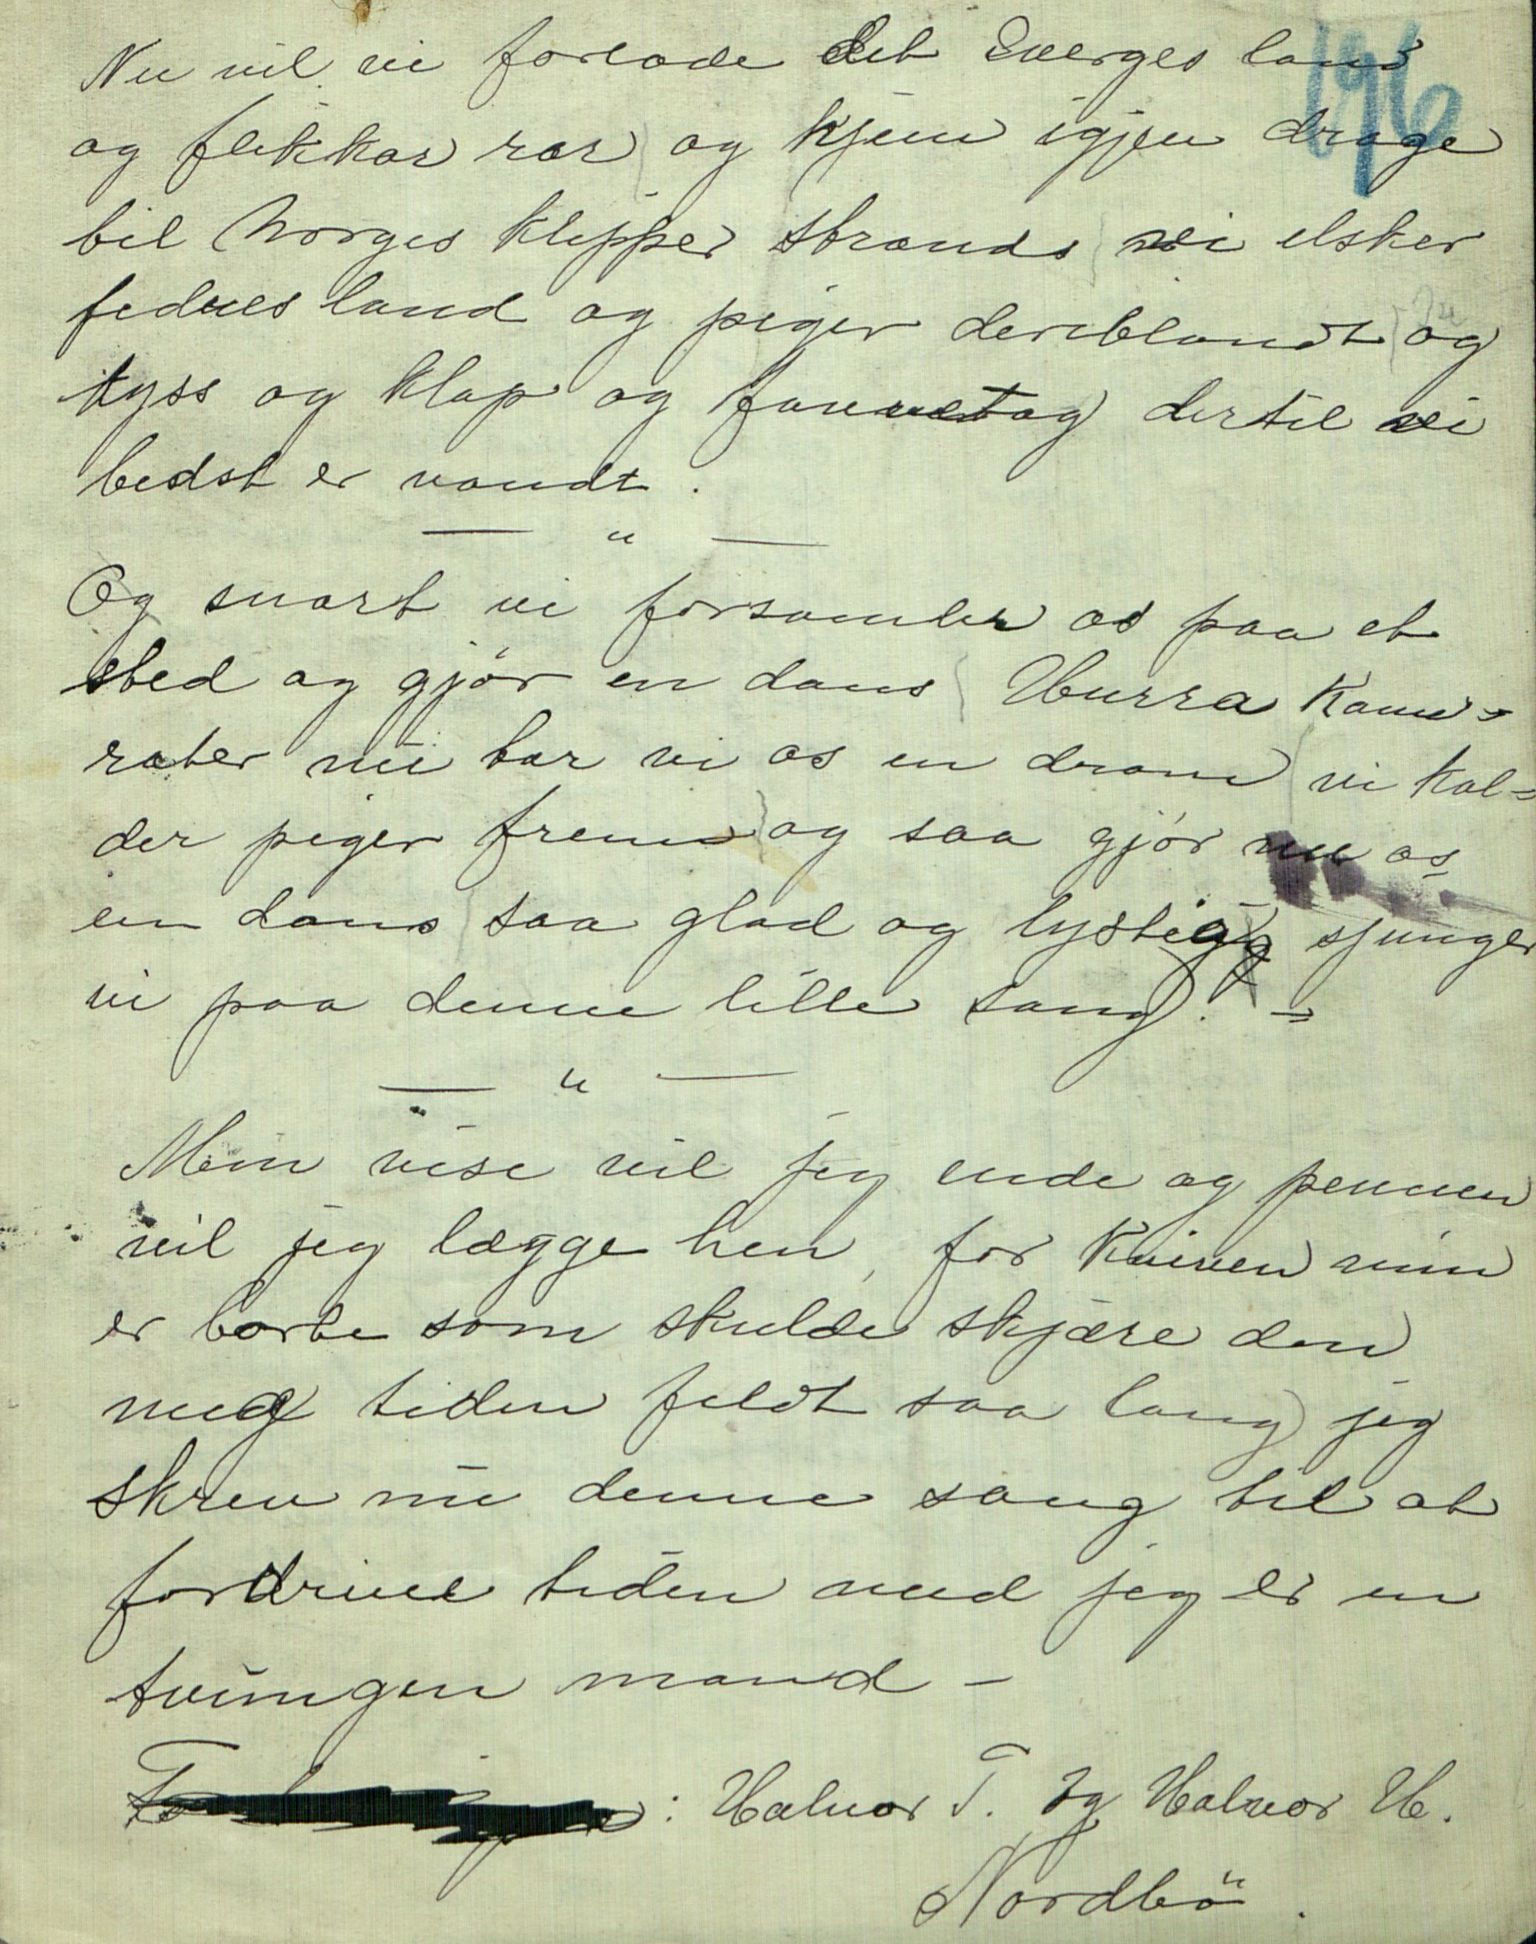 196
Nu vil vi forlade det Sverges land
og flikkar rar og hjem igjen drage
til Norges klipper strands vi elsker
fednes land og piger deriblandt og
kyss og klap og favnetag dertil vi
bedst er vandt.
— " —
Og snart vi forsamler os paa et
sted og gjør en dans Hurra Kame=
rater nu tar vi os en dram vi kal=
der piger frem og saa gjør nu os
en dans saa glad og lystig sjunger
vi paa denne lille sang. —
— " —
Min vise vil jeg ende og pennen
vil jeg lægge hen, for Kniven min
er borte som skulde skjære den
mig tiden feldt saa lang jeg
skrev nu denne sang til at
fordrive tiden med jeg er en
tvungen mand —
: Halvor T. og Halvor H.
Nordbö.